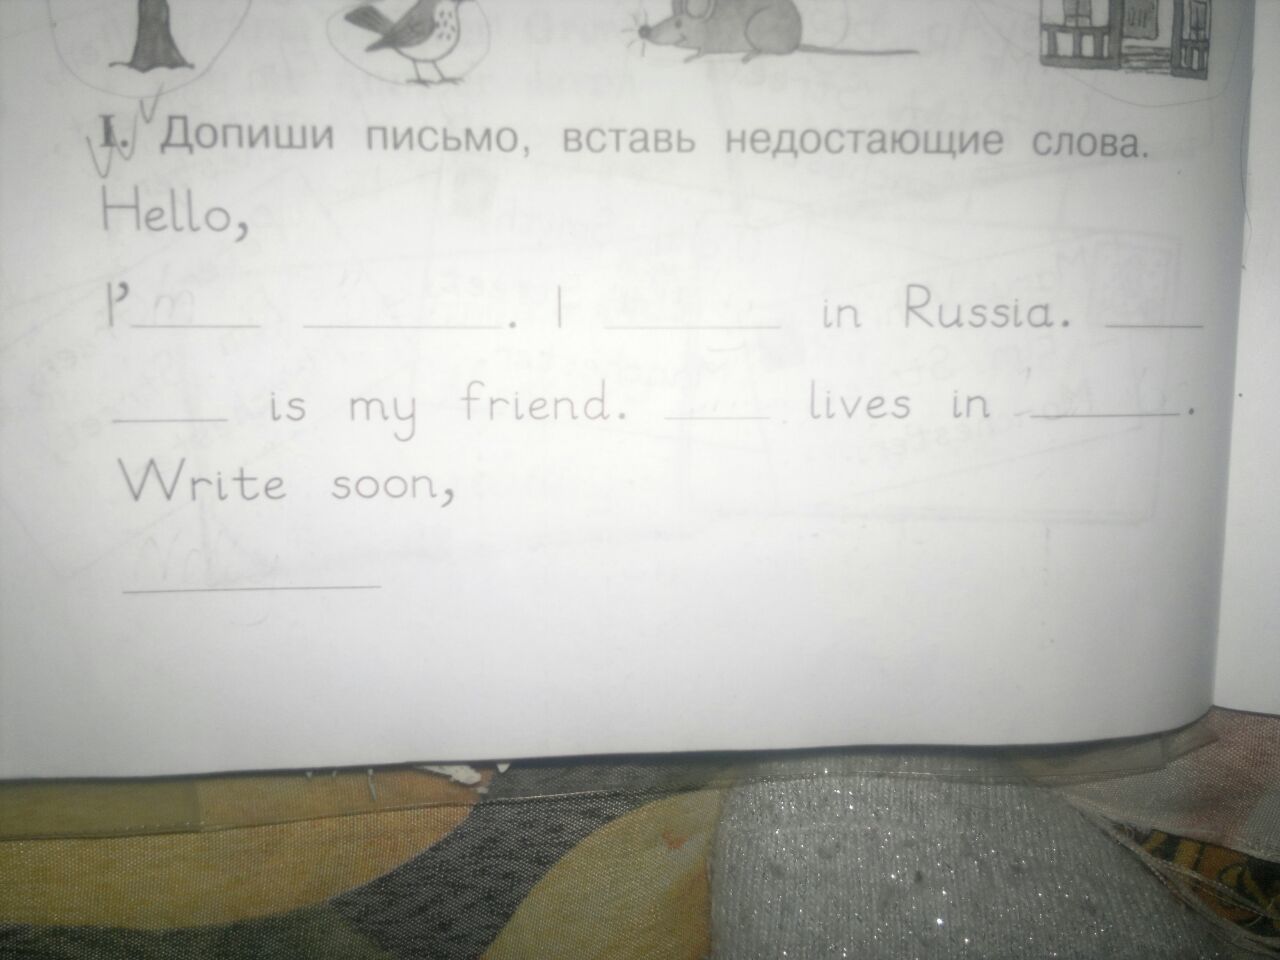 I. Допиши письмо, вставь недостающие слова.
Hello,
I'm ______ ______. I ______ in Russia. ____
____ is my friend. ____ lives in ______.
Write soon,